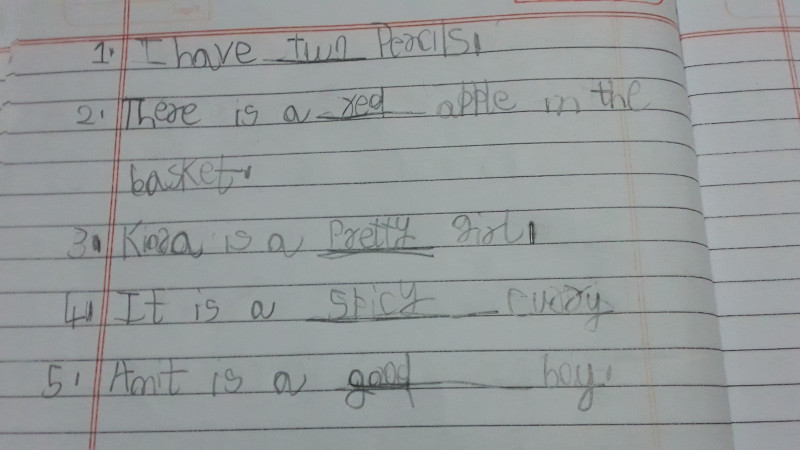 1. I have two Pencils.
2. There is a red apple in the
basket.
3. Kiara is a Pretty girl.
4. It is a spicy curry
5. Amit is a good boy.